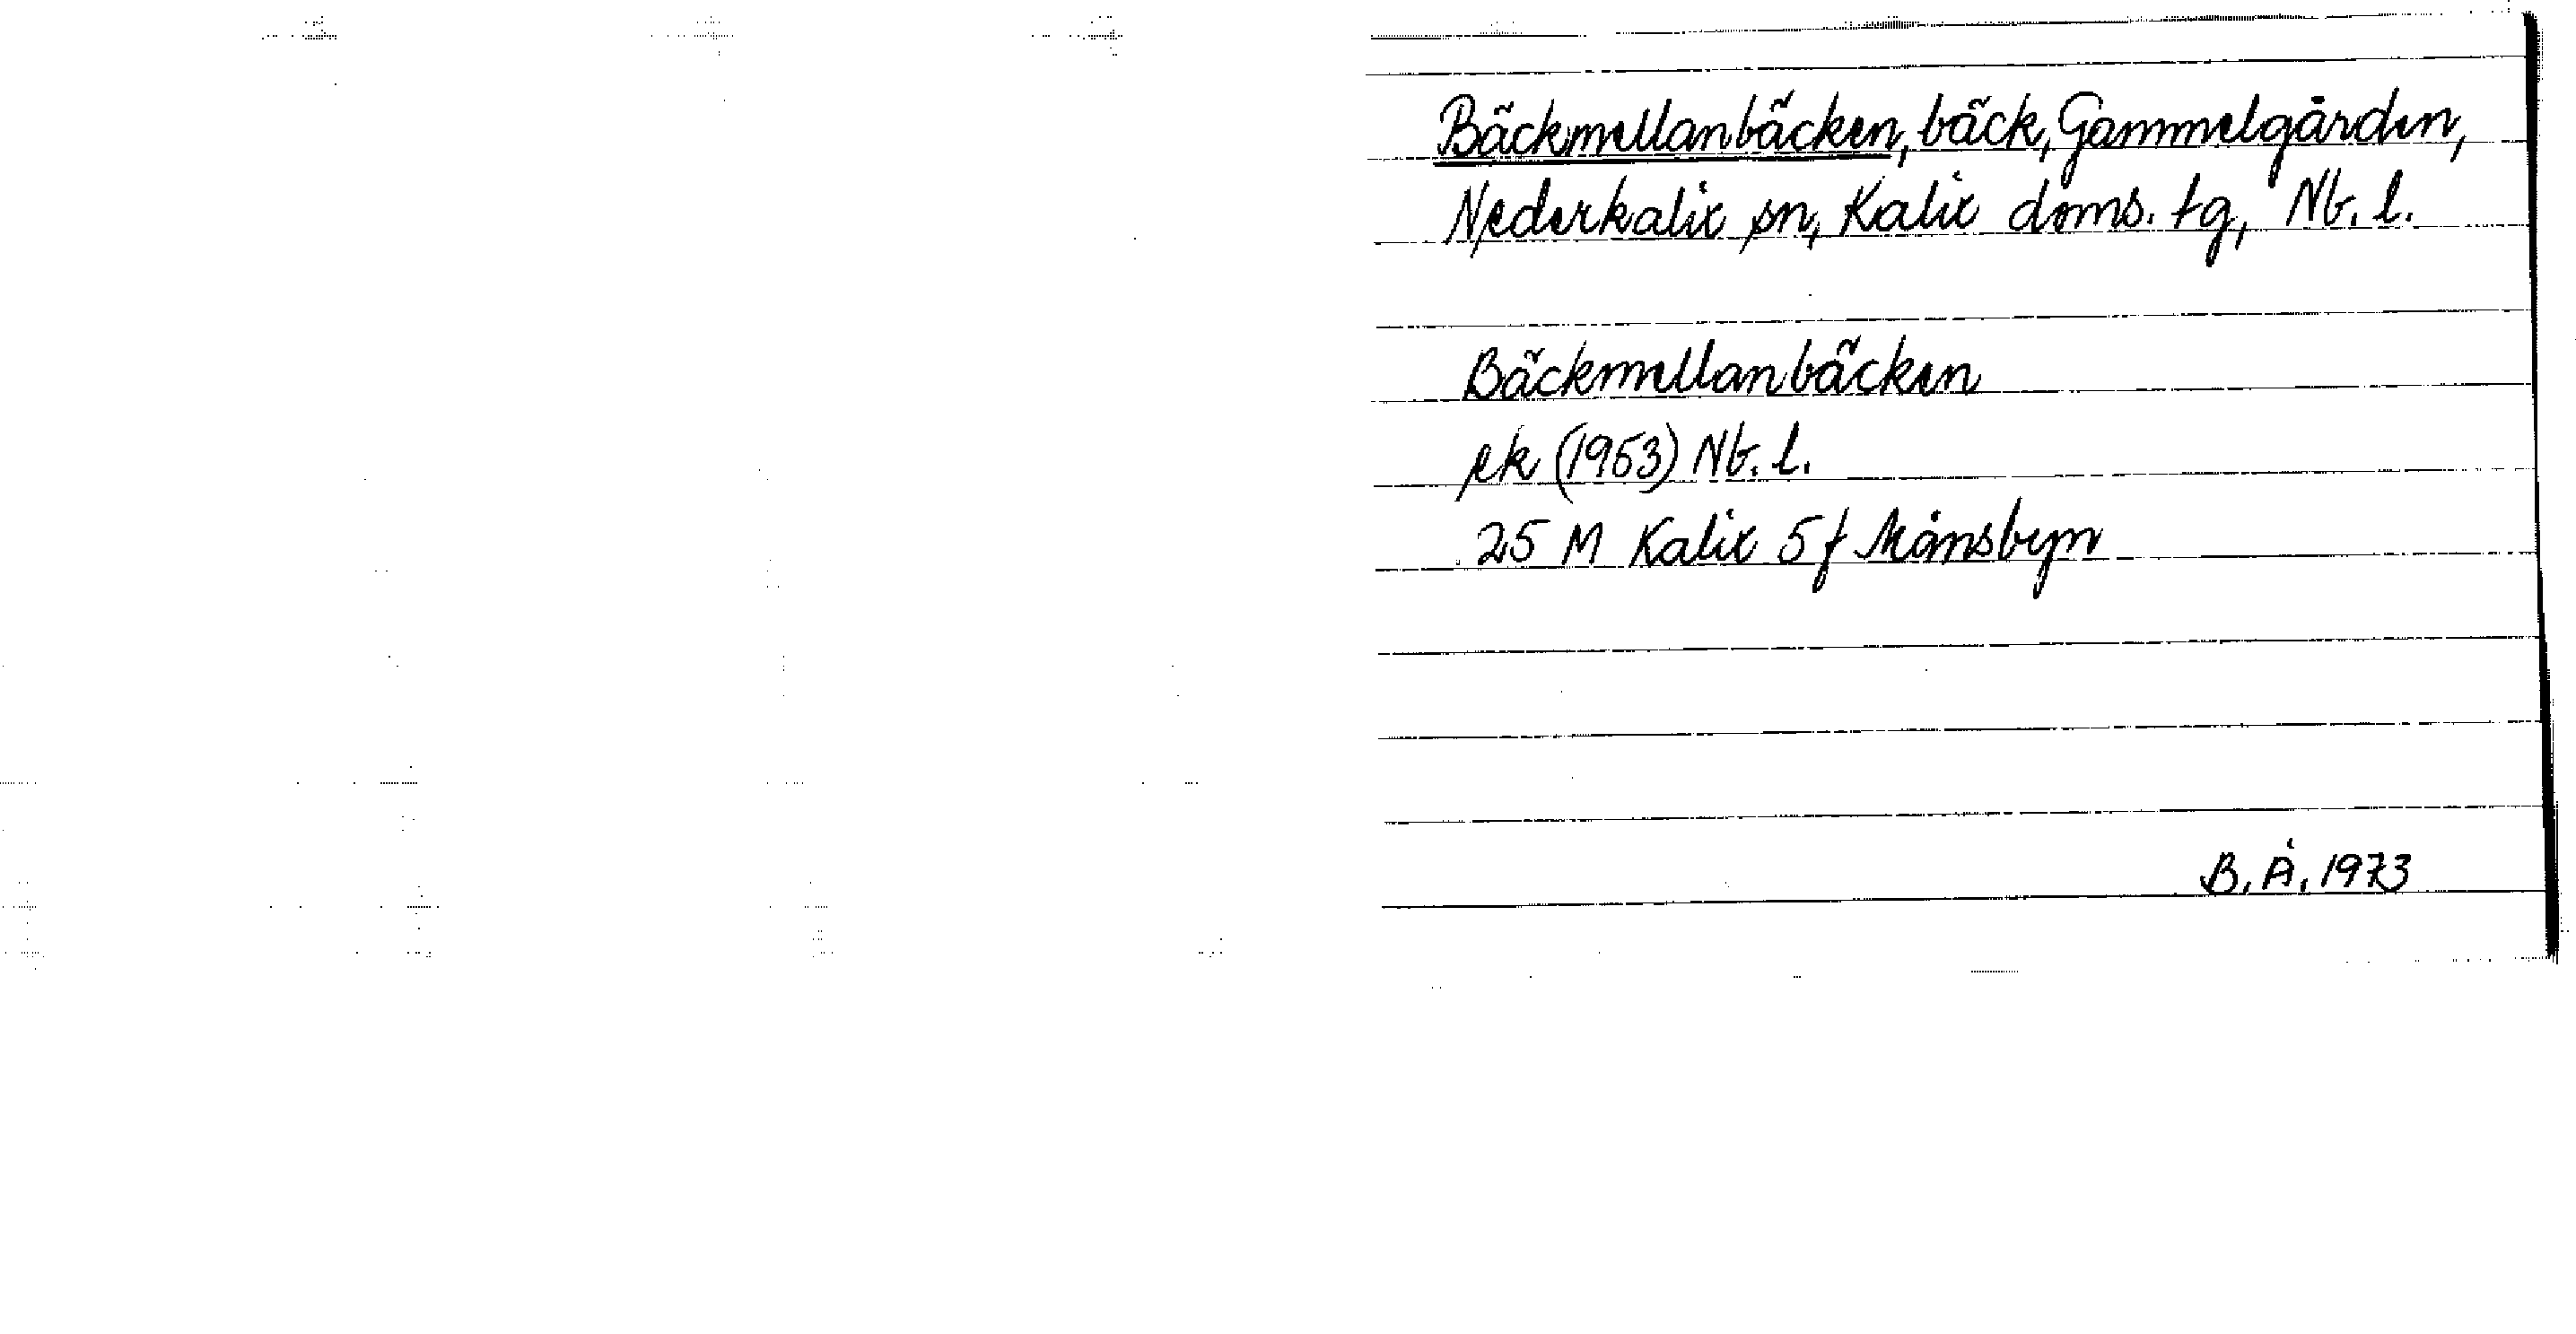 Bäckmellanbäcken, bäck, Gammelgården,
Nederkalix sn, Kalix doms. tg, Nb. l.
Bäckmellanbäcken
ek (1953) Nb. l.
25 M Kalix 5 f Månsbyn
B. Å. 1973